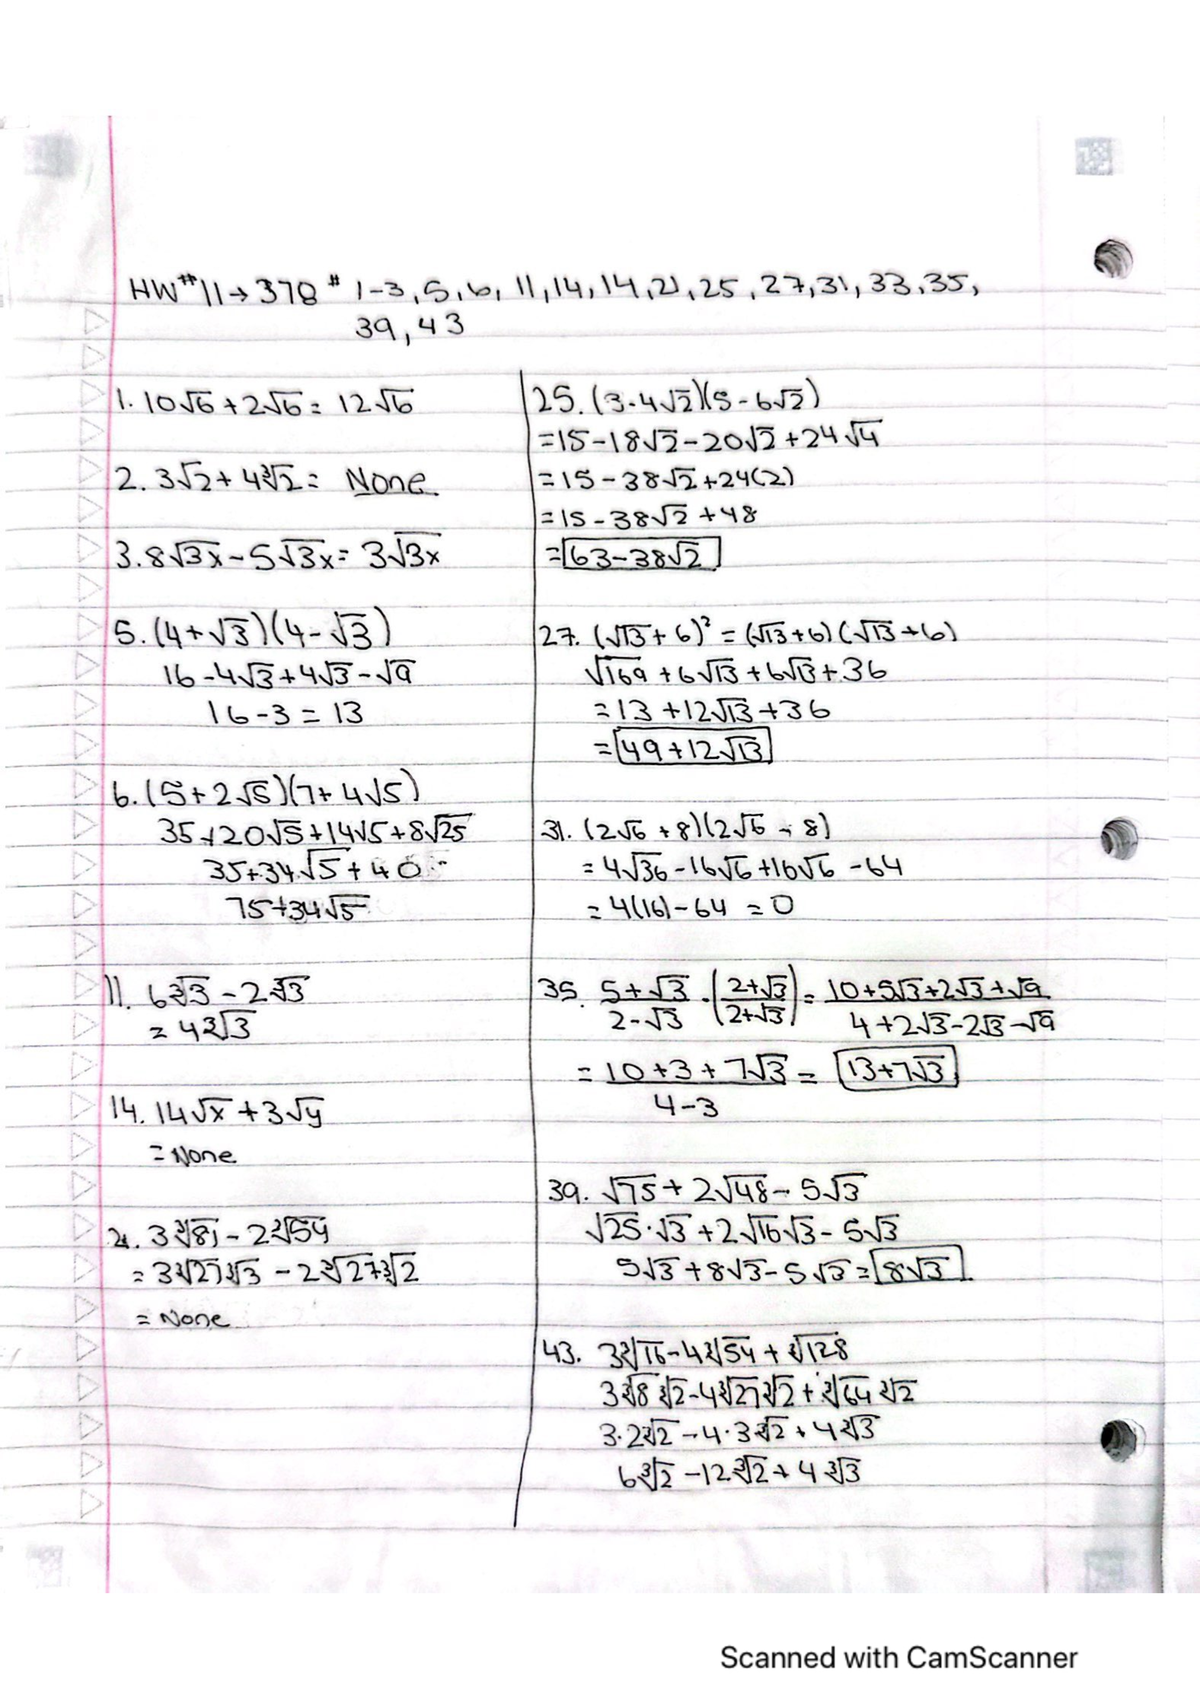 HW#11→378 # 1-3, 5, 6, 11, 14, 14, 21, 25, 27, 31, 33, 35,
39, 43
1. 10√6 + 2√6 = 12√6
2. 3√2 + 4∛2 = None
3. 8√3x - 5√3x = 3√3x
5. (4+√3)(4-√3)
16 - 4√3 + 4√3 - √9
16 - 3 = 13
6. (5+2√5)(7+4√5)
35+20√5+14√5+8√25
35+34√5+40
75+34√5
11. 6∛3 - 2∛3
= 4∛3
14. 14√x + 3√y
= None
21. 3∛81 - 2∛54
= 3∛27∛3 - 2∛27∛2
= None
25. (3-4√2)(5-6√2)
= 15 - 18√2 - 20√2 + 24√4
= 15 - 38√2 + 24(2)
= 15 - 38√2 + 48
= 63 - 38√2
27. (√13 + 6)² = (√13+6)(√13+6)
√169 + 6√13 + 6√13 + 36
= 13 + 12√13 + 36
= 49 + 12√13
31. (2√6 + 8)(2√6 - 8)
= 4√36 - 16√6 + 16√6 - 64
= 4(16) - 64 = 0
35. (5+√3)/(2-√3) · ((2+√3)/(2+√3)) = (10+5√3+2√3+√9)/(4+2√3-2√3-√9)
= (10+3+7√3)/(4-3) = 13+7√3
39. √75 + 2√48 - 5√3
√25·√3 + 2√16√3 - 5√3
5√3 + 8√3 - 5√3 = 8√3
43. 3∛16 - 4∛54 + ∛128
3∛8 ∛2 - 4∛27∛2 + ∛64 ∛2
3·2∛2 - 4·3∛2 + 4∛3
6∛2 - 12∛2 + 4∛3
Scanned with CamScanner